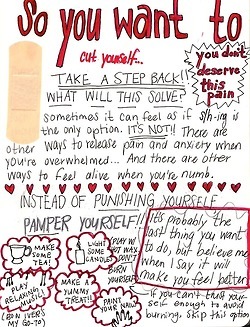 So you want to
cut yourself...
you don't
deserve
this
pain
TAKE A STEP BACK!!
WHAT WILL THIS SOLVE?
sometimes it can feel as if s/h-ing is
the only option. IT'S NOT!! There are
other ways to release pain and anxiety when
you're overwhelmed... And there are other
ways to feel alive when you're numb.
INSTEAD OF PUNISHING YOURSELF
PAMPER YOURSELF!!
MAKE
SOME
TEA!
LIGHT
SOME
CANDLES
PLAY W/
HOT WAX.
DON'T
BURN
YOURSELF
PLAY
RELAXING
MUSIC
(BON IVER'S
MY GO-TO)
MAKE A
YUMMY
TREAT!!
PAINT
YOUR
It's probably the
last thing you want
to do, but believe me
when I say it will
make you feel better
if you can't trust your
self enough to avoid
burning, skip this option